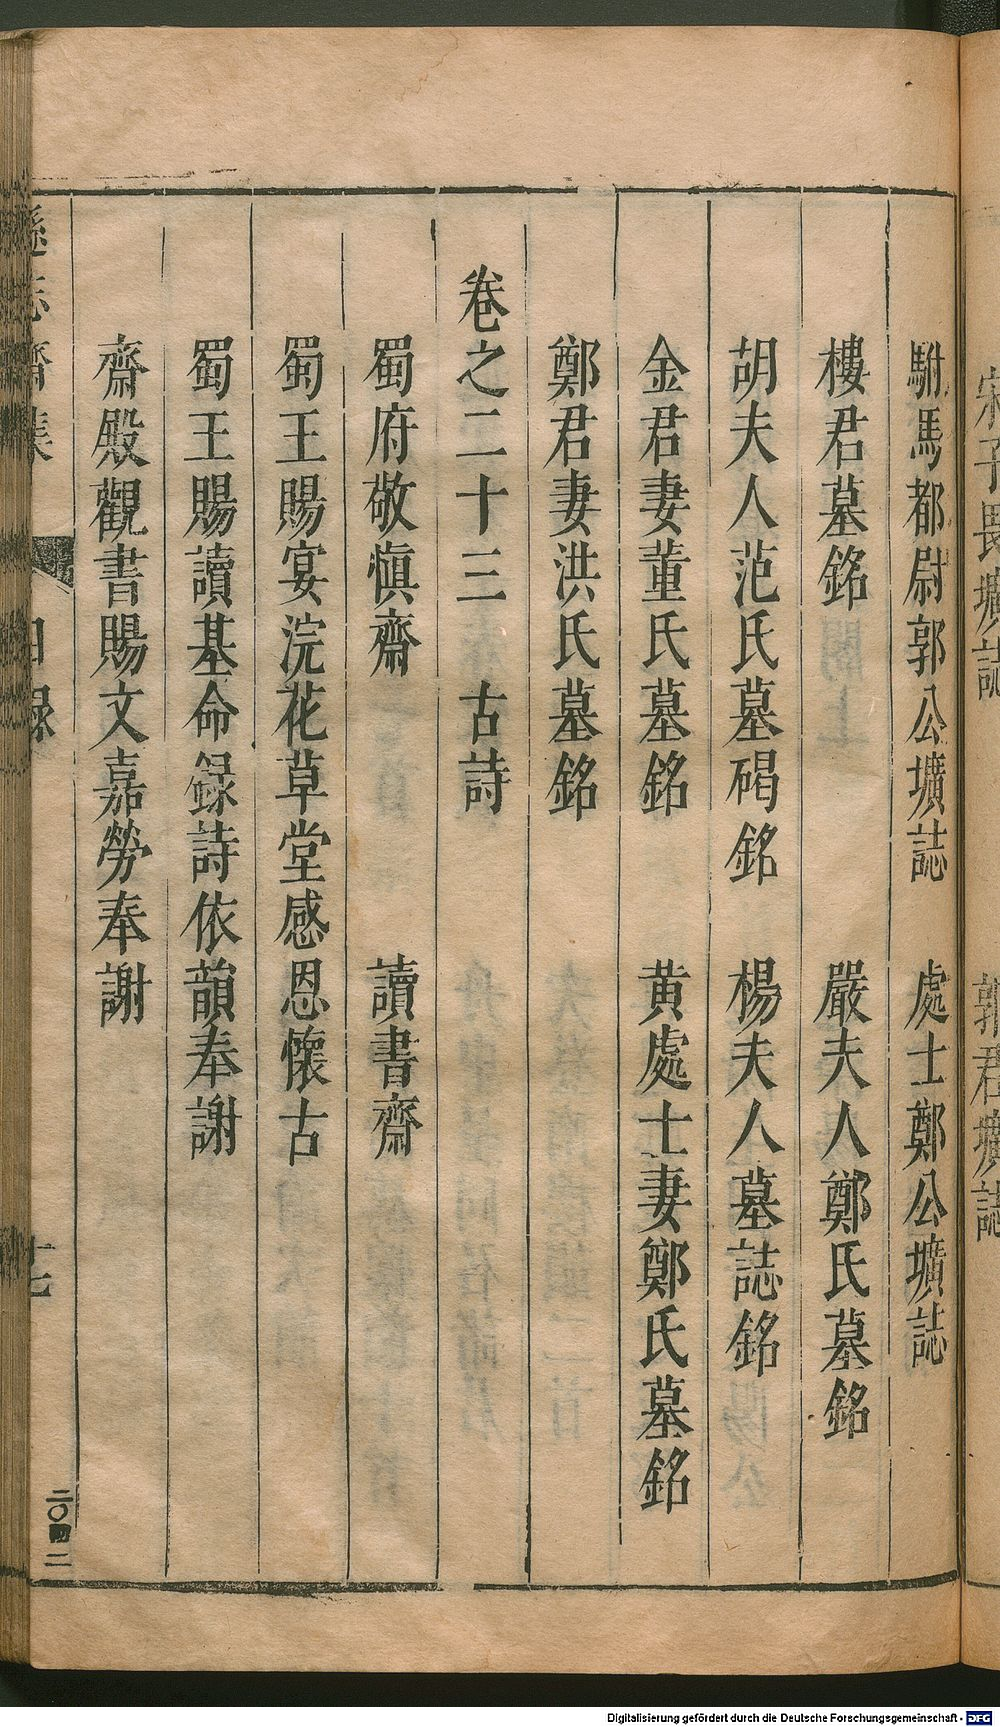 宋子畏壙誌　郭君壙誌
駙馬都尉郭公壙誌　處士鄭公壙誌
樓君墓銘　嚴夫人鄭氏墓銘
胡夫人范氏墓碣銘　楊夫人墓誌銘
金君妻董氏墓銘　黃處士妻鄭氏墓銘
鄭君妻洪氏墓銘
卷之二十三　古詩
蜀府敬愼齋　讀書齋
蜀王賜宴浣花草堂感恩懷古
蜀王賜讀基命録詩依韻奉謝
齋殿觀書賜文嘉勞奉謝
遜志齋集　目録　十七
二〇四二
Digitalisierung gefördert durch die Deutsche Forschungsgemeinschaft - DFG